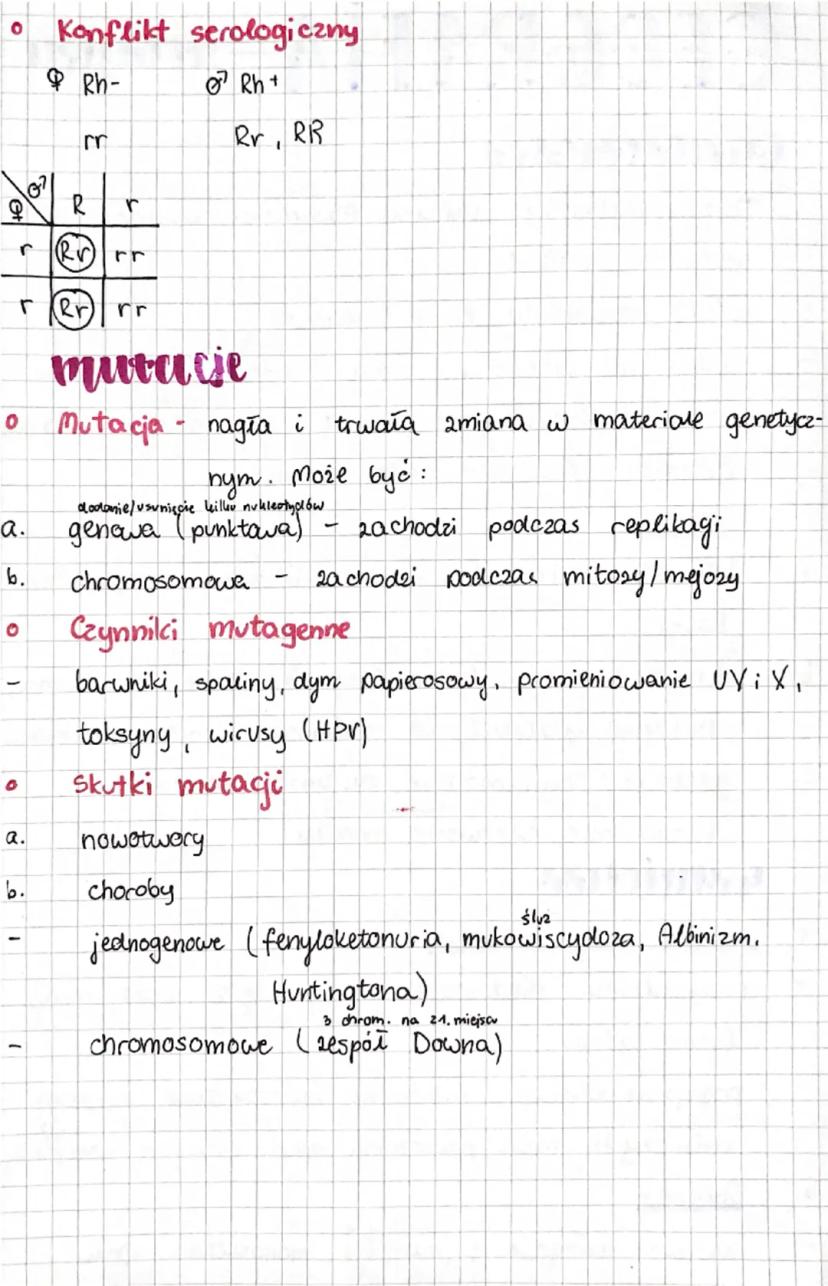 Konflikt serologiczny
♀ Rh- ♂ Rh+
rr Rr, RR
♀ ♂ R r
r Rr rr
r Rr rr
mutacje
Mutacja - nagła i trwała zmiana w materiale genetycz-
nym. Może być:
dodanie/usunięcie kilku nukleotydów
a. genowa (punktowa) - zachodzi podczas replikacji
b. chromosomowa - zachodzi podczas mitozy/mejozy
Czynniki mutagenne
- barwniki, spaliny, dym papierosowy, promieniowanie UV i X,
toksyny, wirusy (HPV)
Skutki mutacji
a. nowotwory
b. choroby
śluz
- jednogenowe (fenyloketonuria, mukowiscydoza, Albinizm,
Huntingtona)
3 chrom. na 21. miejscu
- chromosomowe (zespół Downa)